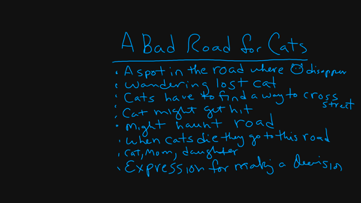 A Bad Road for Cats
• A spot in the road where disappear
• Wandering lost cat
• Cats have to find a way to cross street
• Cat might get hit
• Might haunt road
• When cats die they go to this road
• Cat, Mom, daughter
• Expression for making a Decision